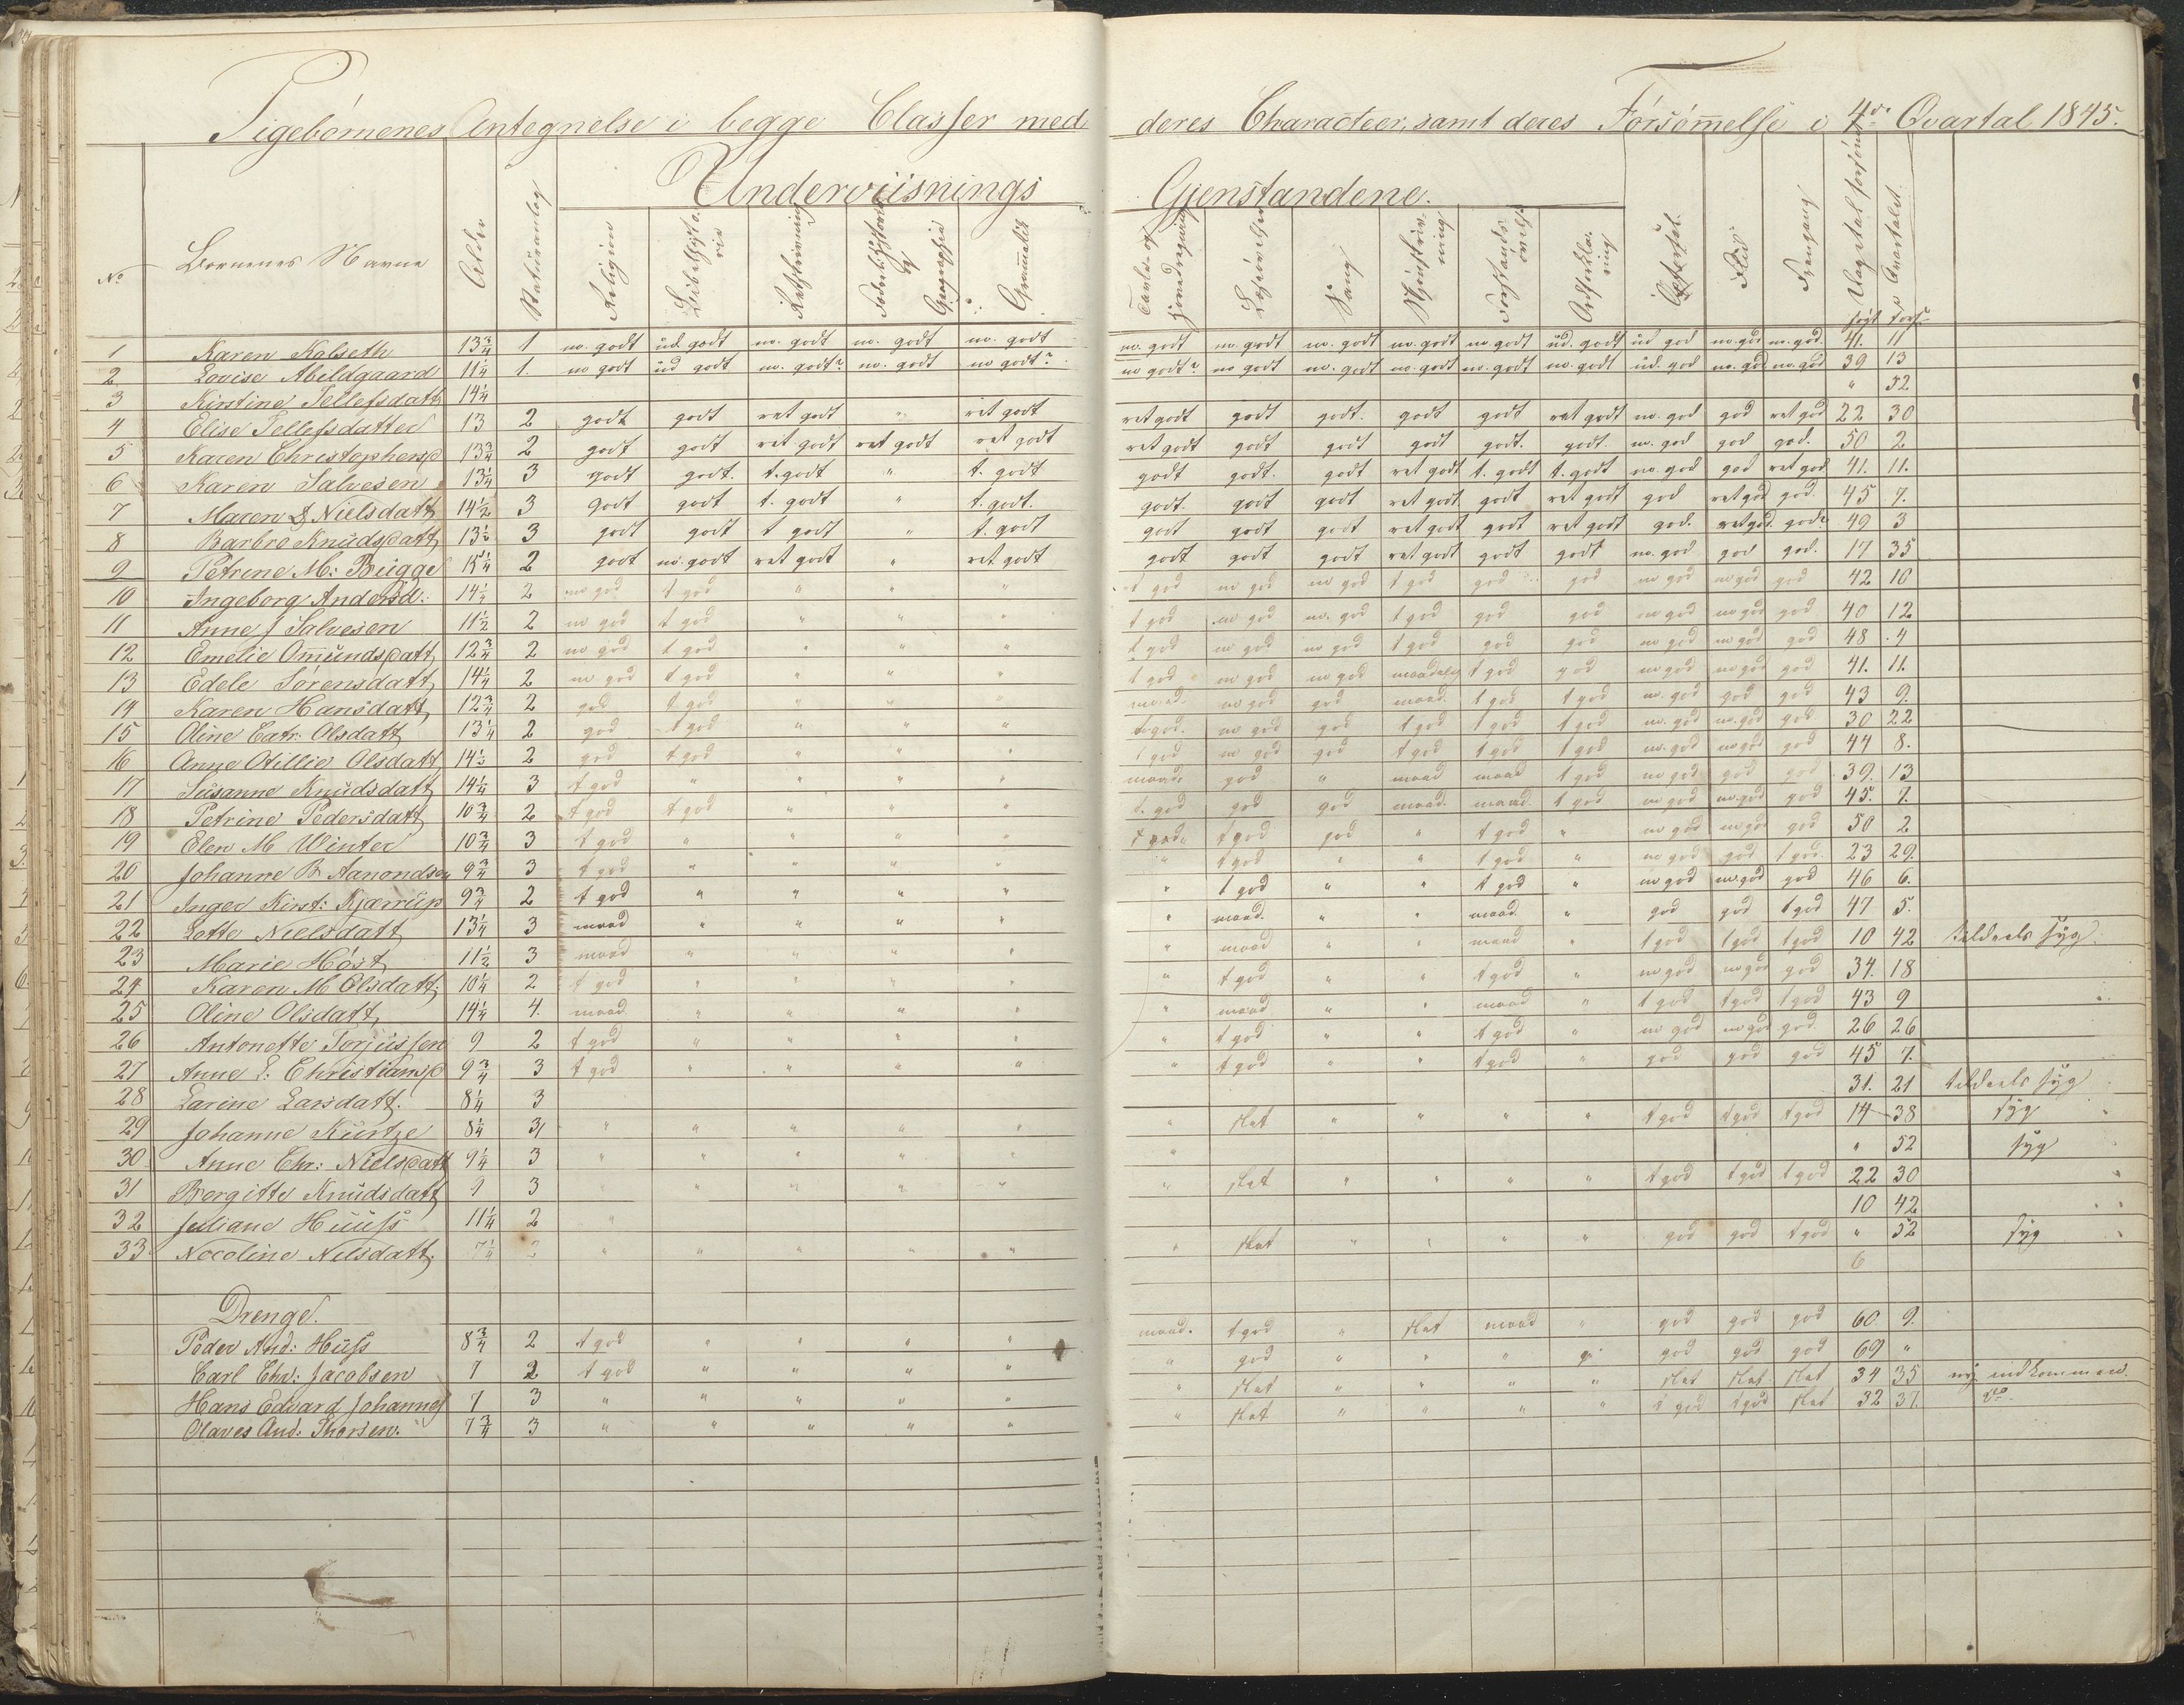 Pigebørnenes Antegnelse i begge Classer med deres Characteer, samt deres Forsømmelse i 4de Qvartal 1845.
Underviisnings Gjenstandene.
No Børnenes Navne Alder Naturanleg Religion Bibelhistorie Retskrivning Fædrel. Historie og Geographie Grammatik Tavle- og Hovedregning Læseøvelse Sang Skjønskrivning Forstandsøvelse Ordforklaring Opførsel Flid Fremgang
søgt fors.
1 Karen Kalseth 13 3/4 1 m. godt ud. godt m. godt m. godt m. godt m. godt m. godt m. godt m. godt m. godt ud. godt ud god m. god m. god. 41. 11
2 Lovise Abeldgaard 11 1/4 1. m godt ud godt m. godt? m. godt m godt? m godt? m godt m. godt m. godt m. godt m. godt ud. god m. god m. god 39 13
3 Kirstine Tellefsdatt 14 1/4 " 52
4 Elise Tellefsdatter 13 2 godt godt ret godt " ret godt ret godt godt godt. godt godt ret godt m. god god ret god 22 30
5 Karen Christophersd 13 3/4 2 godt godt ret godt ret godt ret godt ret godt godt godt godt godt. godt. m. god god god. 50 2
6 Karen Salvesen 13 1/4 3 godt godt. t. godt " t. godt godt godt. godt ret godt t. godt t. godt m. god god ret god 41. 11.
7 Maren S Nielsdatt 14 1/2 3 godt godt t. godt " t. godt. godt. godt godt ret godt godt ret godt god ret god god. 45 7.
8 Barbro Knudsdatt 13 1/2 3 godt godt t godt " t. godt godt godt godt ret godt godt ret godt god. ret god. god 49 3
9 Petrine M: Bugge 13 1/4 2 godt m. godt ret godt " ret godt godt godt godt ret godt godt godt m. god god god. 17 35
10 Ingeborg Andersd. 14 1/4 2 m god t god " " " t god m god m god t god god god m god m god god 42 10
11 Anne J Salvesen 11 1/2 2 m god t god " " " t god m god m. god t god god god m god m god god 40 12
12 Emelie Omundsdatt 12 3/4 2 m god t god " " " t god m god m god t god god god m god m god god 48 4
13 Edele Sørensdatt 14 1/4 2 m god t god " " " t god m god m god maadelig t god god m god m god god 41. 11.
14 Karen Hansdatt 12 3/4 2 god t god " " " maad. m god god maad. t god t god m. god god god 43 9.
15 Oline Catr: Olsdatt 13 1/4 2 god t god " " " t god. m god god t god t god t god m. god m. god god 30 22
16 Anne Otillie Olsdatt 14 1/2 2 god t god " " " t god m god god t god t god t god m. god m god god 44 8.
17 Susanne Knudsdatt 14 1/4 3 t god " " " " maad. god " maad maad t god m god god god 39. 13
18 Petrine Pedersdatt 10 3/4 2 t god t god " " " t. god god god maad. maad. t god m god m. god god 45. 7.
19 Elen M Winter 10 3/4 3 t god " " " " t god. t god god " t god " m god m god god 50 2
20 Johanne B Aanondsen 9 3/4 3 t god " " " " " t god " " t god " m god god t god. 23 29.
21 Inger Kirst: Kjærrup 9 3/4 2 t god " " " " " t god " " t god " m god m. god god 46 6.
22 Lotte Nielsdatt 13 1/4 3 maad " " " " " maad. " " maad. " god god t god 47 5.
23 Marie Høst 11 1/2 3 maad " " " " " maad " " maad " t god t god t god 10 42 tildeels syg.
24 Karen M Olsdatt. 10 1/4 2 t god " " " " " t god " " t god " m god m god god 34. 18
25 Oline Olsdatt, 14 1/4 4. maad. " " " " " maad " " maad " t god t god t god 43 9
26 Antonette Torjussen 9 2 t god " " " " " t god " " t god " m god m god god. 26 26
27 Anne E: Christiansd 9 3/4 3 t god " " " " " t god " " t god " god god god 45 7.
28 Larine Larsdatt. 8 1/4 3 31. 21 tildeels syg
29 Johanne Kurtze 8 1/4 3 " " " " " " slet " " " " t god t god t god 14 38 syg
30 Anne Chr: Nielsdatt 9 1/4 3 " " " " " " " 52 syg
31 Bergitte Knudsdatt 9 3 " " " " " " slet " " " " t god t god t god 22 30
32 Juliane Huuss 11 1/4 2 " 10 42
33 Nicoline Nilsdatt. 7 1/4 2 " " " " " " slet " " " " god god t god " 52 syg
6
Drenge.
Peder And: Huss 8 3/4 2 t god " " " " maad. t god " slet maad " god god god 60 9.
Carl Chr: Jacobsen 7 2 t god " " " " " god " " " g. god god god 69 "
Hans Edvard Johannes 7 3 " " " " " " slet " " " " slet slet slet 34 35 ny indkommen.
Olaves And. Thorsen. 7 3/4 3 " " " " " " slet " " " " t god t god slet 32 37. do.